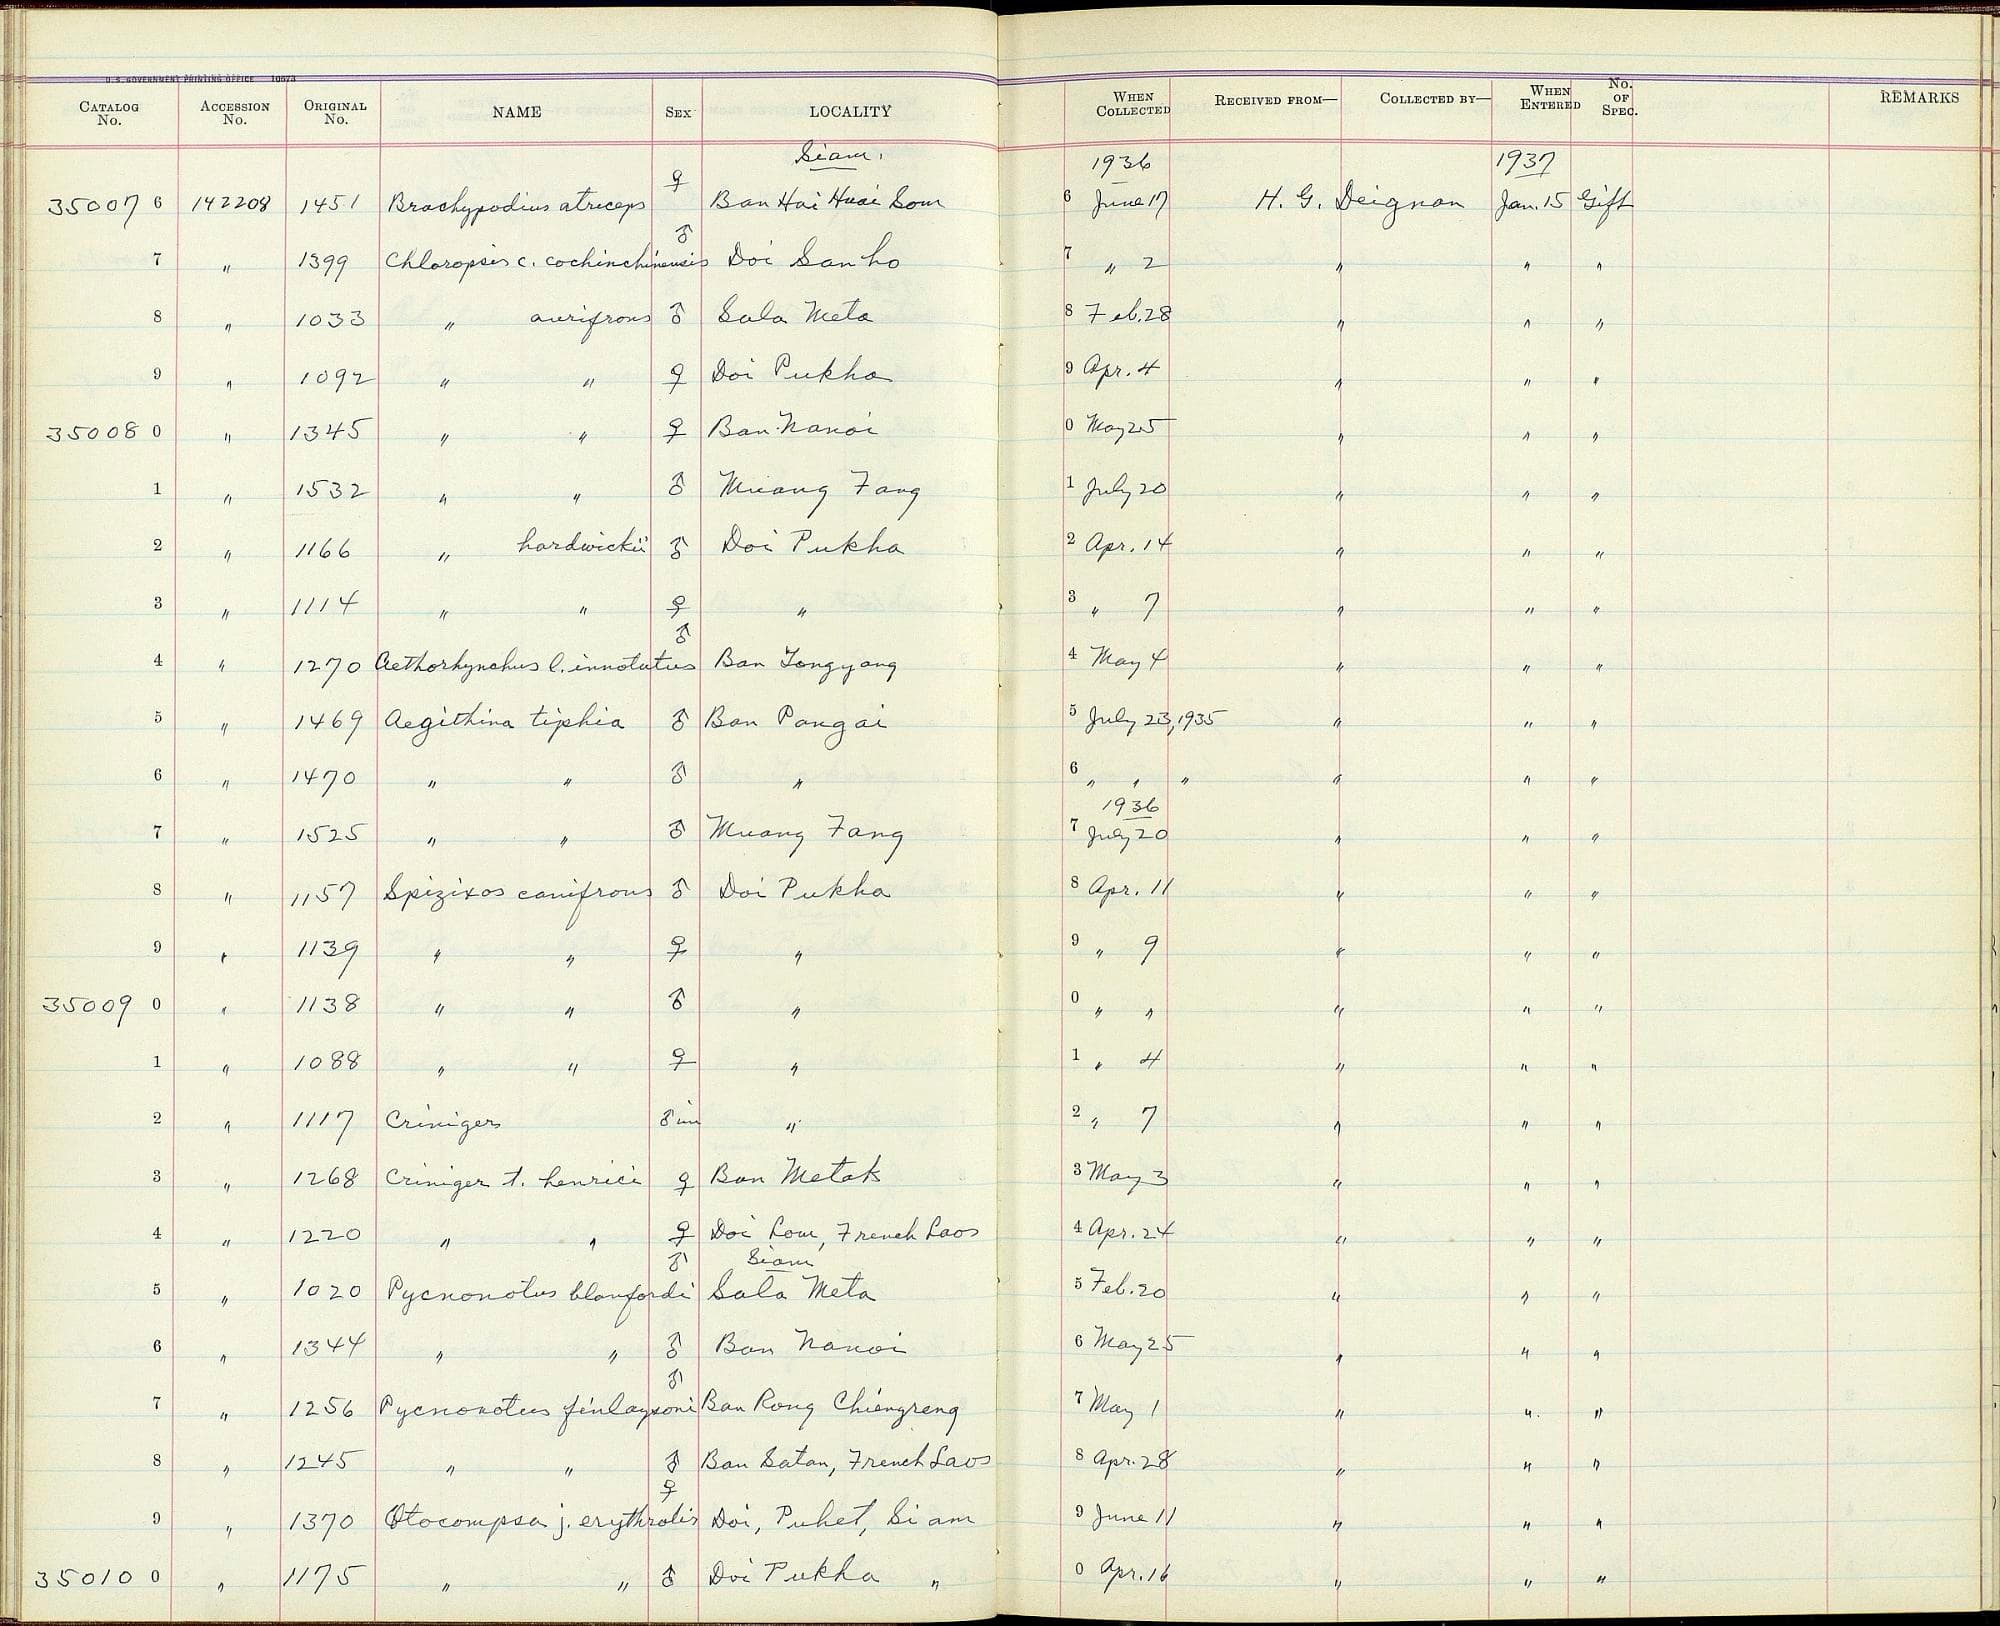 U.S. GOVERNMENT PRINTING OFFICE 10673
CATALOG No. ACCESSION No. ORIGINAL No. NAME SEX LOCALITY WHEN COLLECTED RECEIVED FROM— COLLECTED BY— WHEN ENTERED No. OF SPEC. REMARKS
Siam. 1936 1937
35007 6 142208 1451 Brachypodius atriceps ♀ Ban Hai Huai Som 6 June 17 H. G. Deignan Jan. 15 Gift
7 " 1399 Chloropsis c. cochinchinensis ♂ Doi Sanho 7 " 2 " " "
8 " 1033 " aurifrons ♂ Sala Meta 8 Feb. 28 " " "
9 " 1092 " " ♀ Doi Pukha 9 Apr. 4 " " "
35008 0 " 1345 " " ♀ Ban Nanoi 0 May 25 " " "
1 " 1532 " " ♂ Muang Fang 1 July 20 " " "
2 " 1166 " hardwickii ♂ Doi Pukha 2 Apr. 14 " " "
3 " 1114 " " ♀ " 3 " 7 " " "
4 " 1270 Aethorhynchus l. innotatus ♂ Ban Tongyang 4 May 4 " " "
5 " 1469 Aegithina tiphia ♂ Ban Pangai 5 July 23, 1935 " " "
6 " 1470 " " ♂ " 6 " " " " " "
1936
7 " 1525 " " ♂ Muang Fang 7 July 20 " " "
8 " 1157 Spizixos canifrons ♂ Doi Pukha 8 Apr. 11 " " "
9 " 1139 " " ♀ " 9 " 9 " " "
35009 0 " 1138 " " ♂ " 0 " " " " "
1 " 1088 " " ♀ " 1 " 4 " " "
2 " 1117 Criniger ♂ im " 2 " 7 " " "
3 " 1268 Criniger t. henrici ♀ Ban Metak 3 May 3 " " "
4 " 1220 " " ♀ Doi Lom, French Laos 4 Apr. 24 " " "
Siam
5 " 1020 Pycnonotus blanfordi ♂ Sala Meta 5 Feb. 20 " " "
6 " 1344 " " ♂ Ban Nanoi 6 May 25 " " "
7 " 1256 Pycnonotus finlaysoni ♂ Ban Rong Chiengreng 7 May 1 " " "
8 " 1245 " " ♂ Ban Satan, French Laos 8 Apr. 28 " " "
9 " 1370 Otocompsa j. erythrotis ♀ Doi, Puhet, Siam 9 June 11 " " "
35010 0 " 1175 " " ♂ Doi Pukha " 0 Apr. 16 " " "